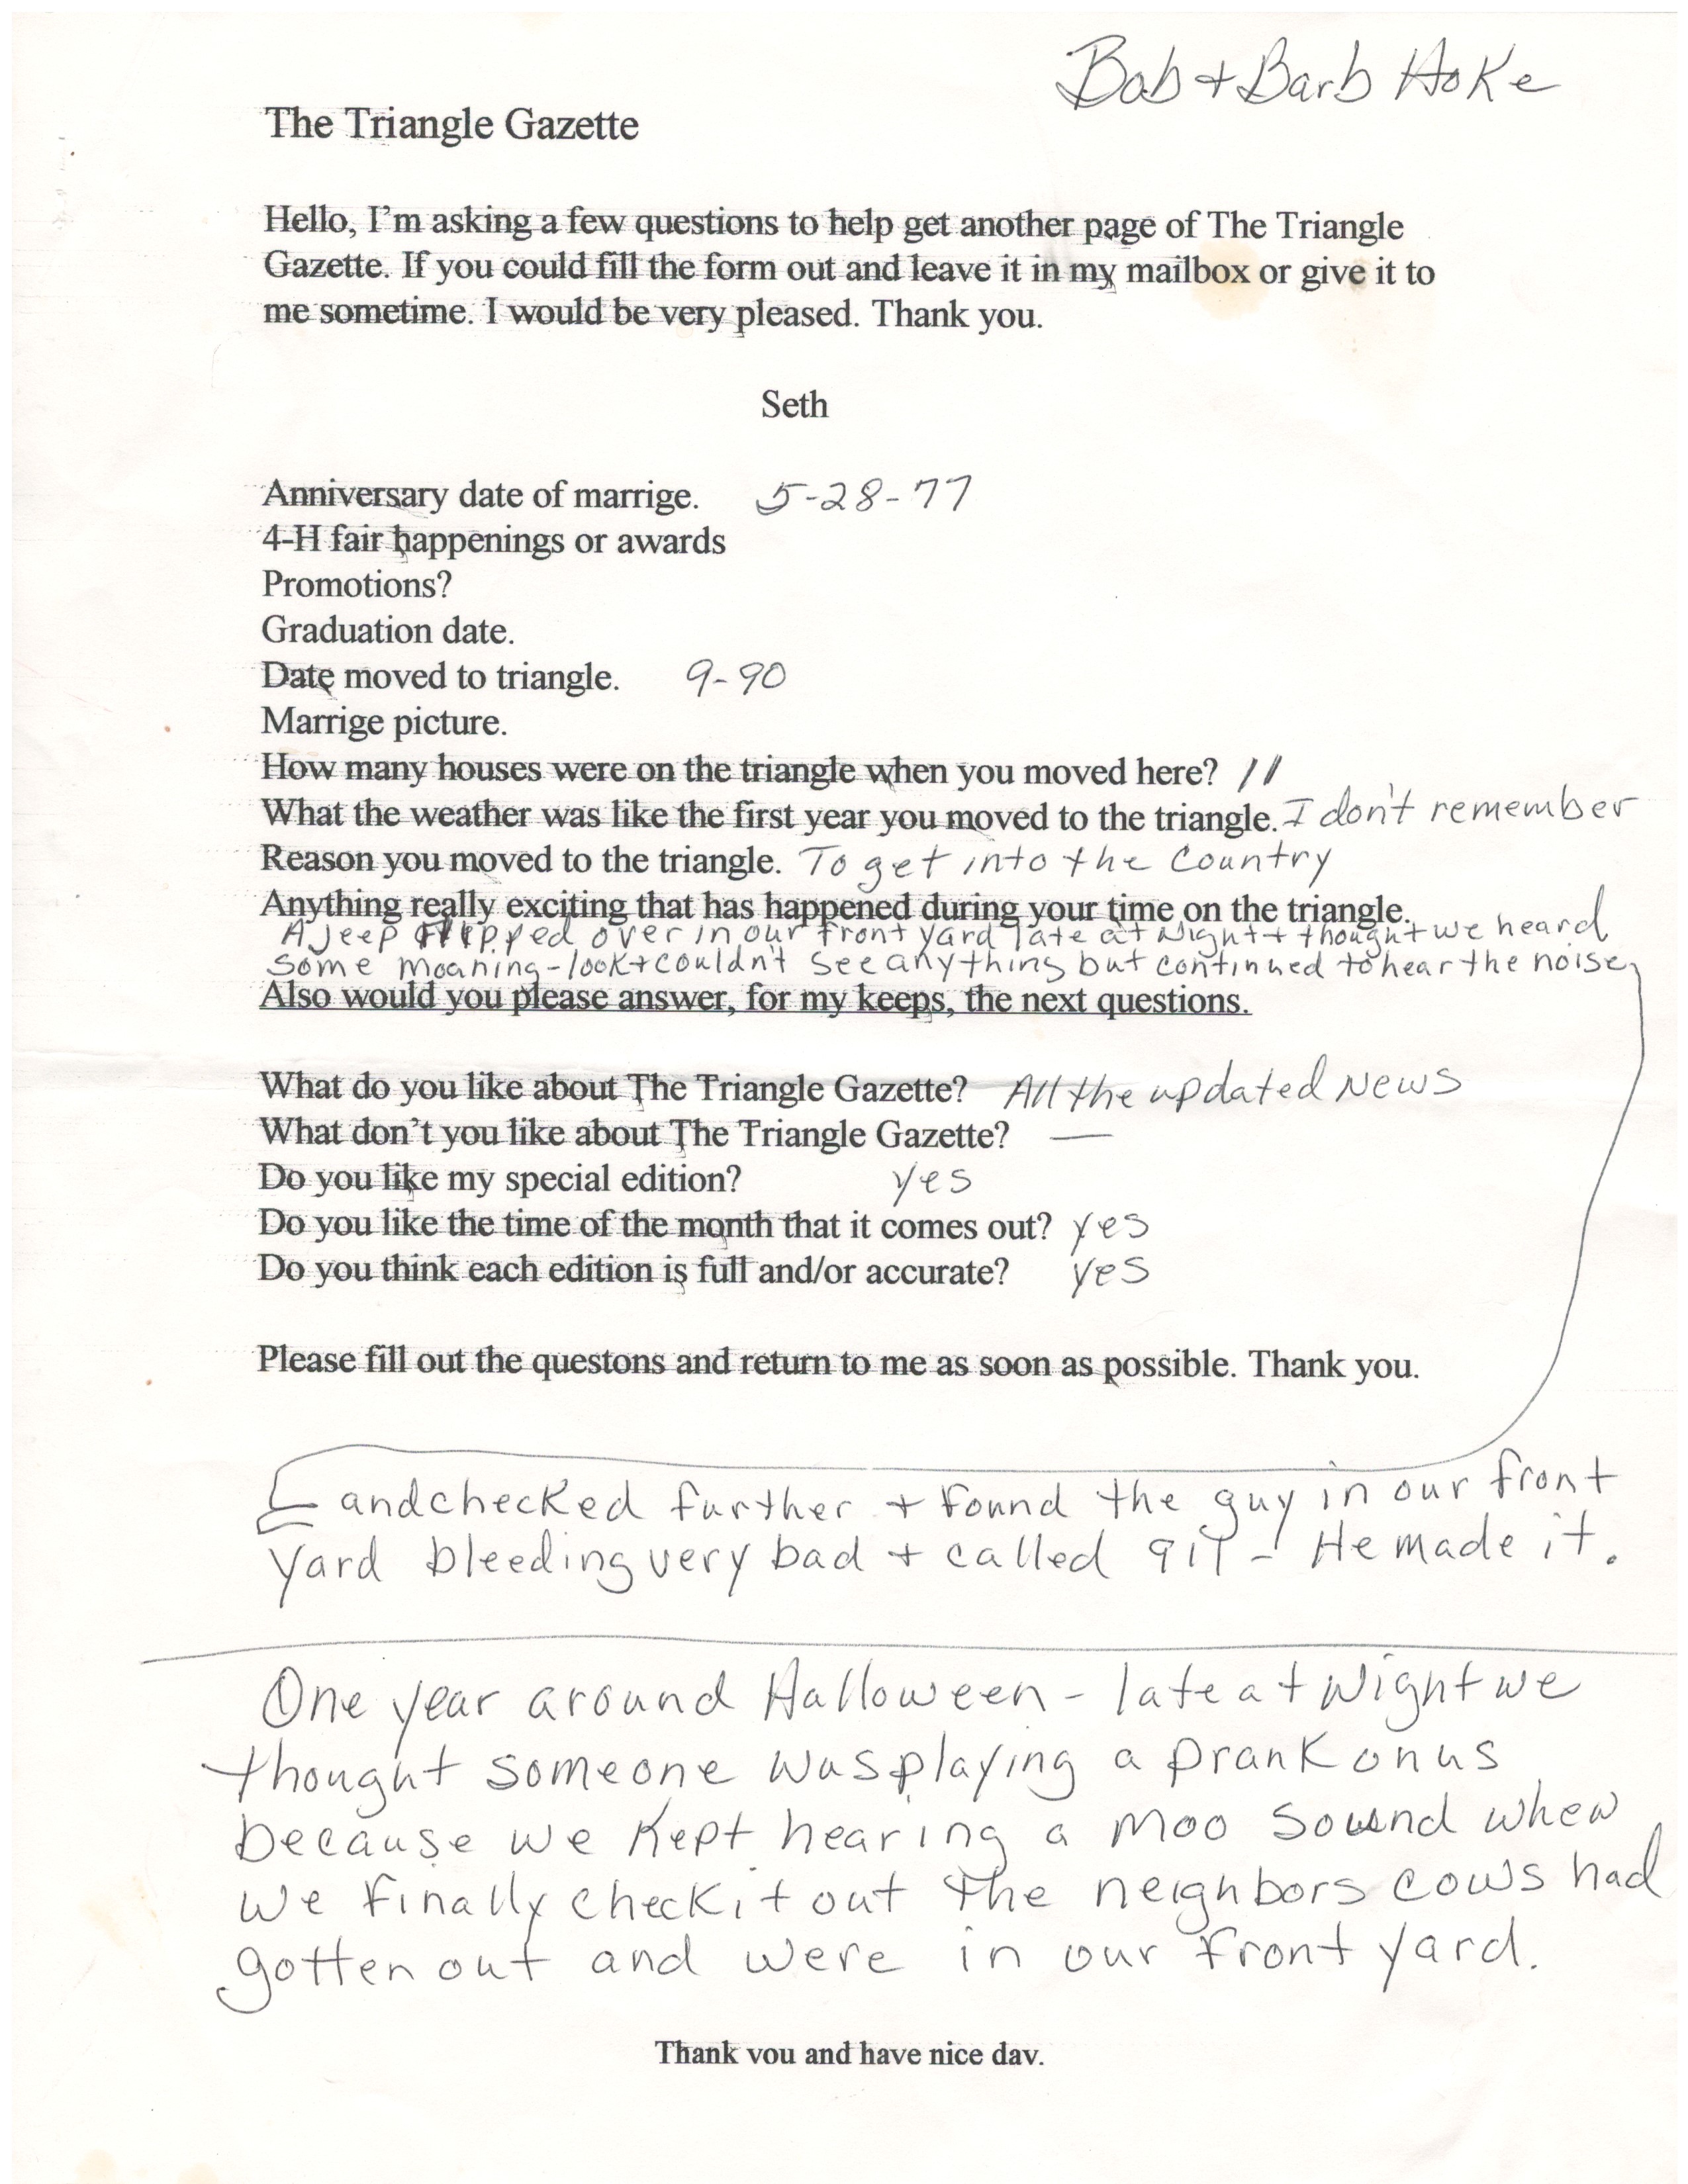 Bob + Barb Hoke
The Triangle Gazette
Hello, I'm asking a few questions to help get another page of The Triangle
Gazette. If you could fill the form out and leave it in my mailbox or give it to
me sometime. I would be very pleased. Thank you.
Seth
Anniversary date of marrige. 5-28-77
4-H fair happenings or awards
Promotions?
Graduation date.
Date moved to triangle. 9-90
Marrige picture.
How many houses were on the triangle when you moved here? 11
What the weather was like the first year you moved to the triangle. I don't remember
Reason you moved to the triangle. To get into the Country
Anything really exciting that has happened during your time on the triangle.
A Jeep flipped over in our front yard late at Night + thought we heard
some moaning - look + couldn't see anything but continued to hear the noise,
Also would you please answer, for my keeps, the next questions.
What do you like about The Triangle Gazette? All the updated News
What don't you like about The Triangle Gazette? —
Do you like my special edition? yes
Do you like the time of the month that it comes out? yes
Do you think each edition is full and/or accurate? yes
Please fill out the questons and return to me as soon as possible. Thank you.
and checked further + found the guy in our front
yard bleeding very bad + called 911 - He made it.
One year around Halloween - late at Night we
thought someone was playing a prank on us
because we kept hearing a moo sound when
we finally check it out the neighbors cows had
gotten out and were in our front yard.
Thank you and have nice day.